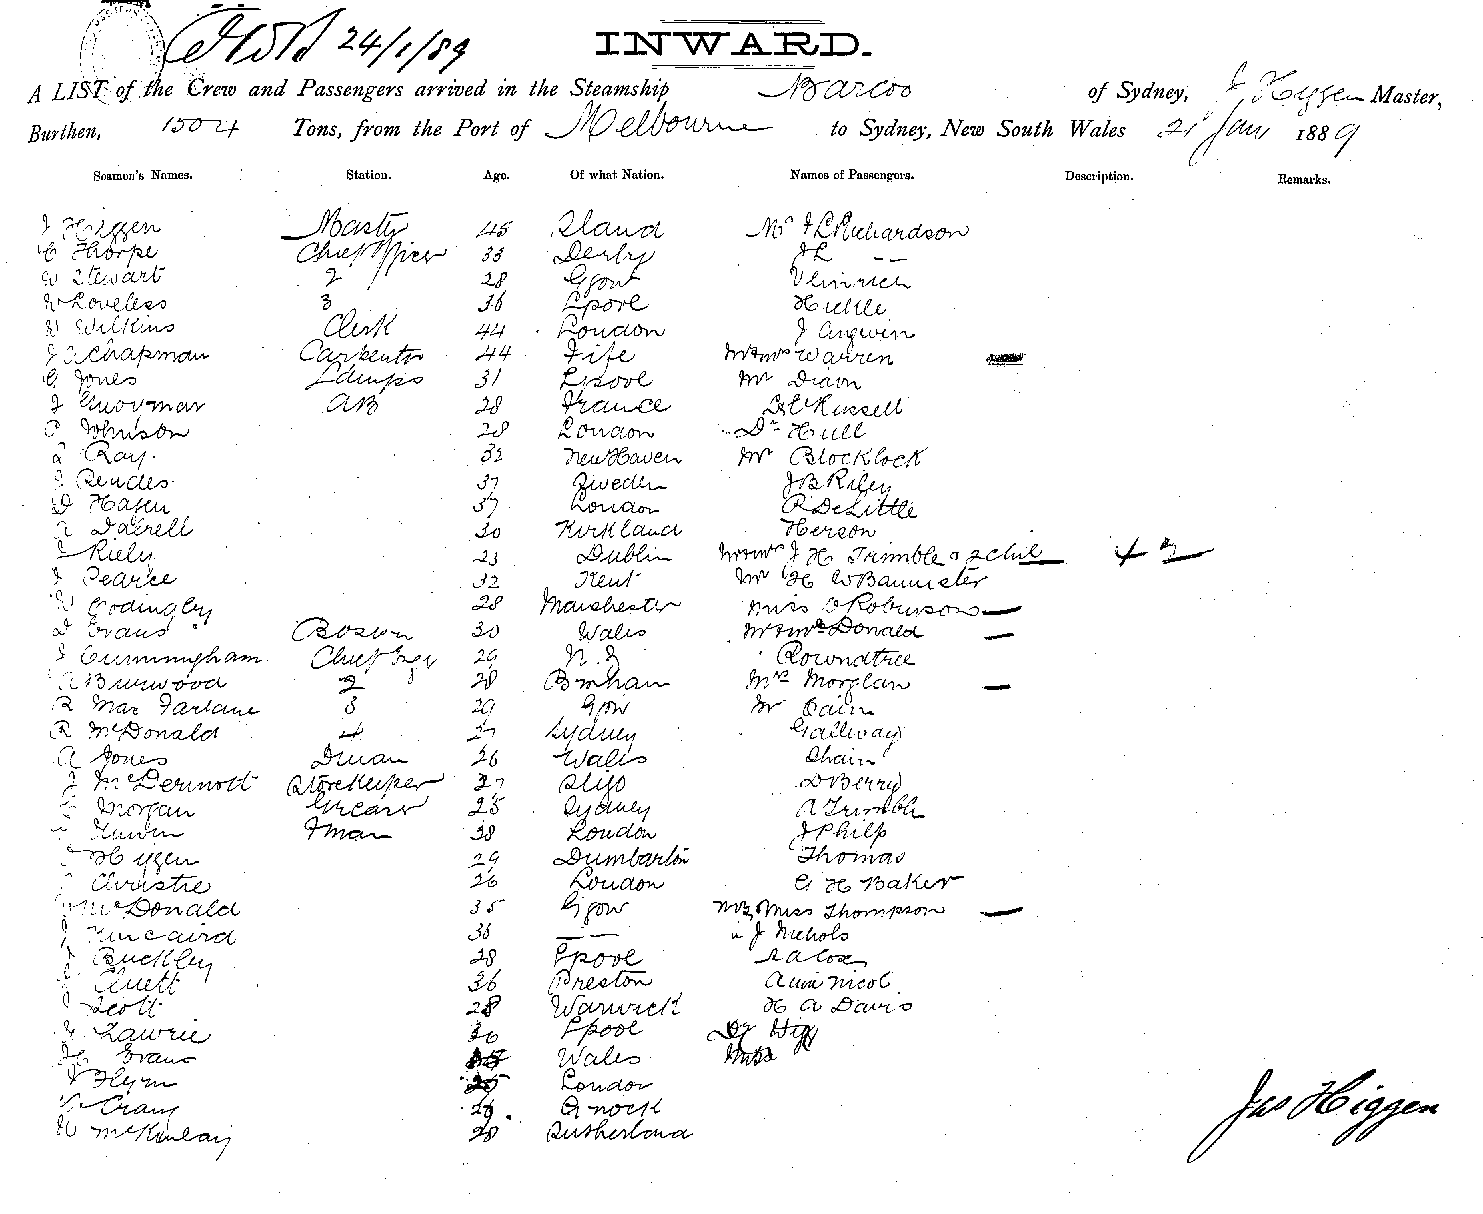 24/1/89
INWARD.
A LIST of the Crew and Passengers arrived in the Steamship Barcoo of Sydney, J Higgen Master,
Burthen, 1504 Tons, from the Port of Melbourne to Sydney, New South Wales 21 Jan 1889
Seamen's Names. Station. Age. Of what Nation. Names of Passengers. Description. Remarks.
J Higgen Master 45 Island Mr J L Richardson
C Thorpe Chief Officer 33 Derby J L — —
W Stewart 2 28 Ggow
W Loveless 3 36 Lpool Hickle
W Wilkins Clerk 44 London J Angwin
J A Chapman Carpenter 44 Fife Mr & Mrs Warren
G Jones Lamps 31 Lpool Mr Dixon
J AB 28 France Russell
P Johnson 28 London Dr Hull
Ray 32 New Haven Mr Blocklock
J Rendes 37 Sweden J B Riley
D Hasen 37 London R De Little
Dalrell 30 Kirkland Herson
J Riely 23 Dublin Mr & Mrs J H Trimble & 2 chil + 2
J Pearce 32 Kent Mr H W Bannister
W Codingley 28 Manchester Miss O Robinson
D Evans Bosun 30 Wales Mr & Mrs Donald
J Cunningham Chief Engr 29 N.Z Rowndtree
A Burwood 2 28 Bmham Mrs Morglan
R MacFarlane 3 29 Ggow Mr Cain
R McDonald 4 27 Sydney Gallway
A Jones Dman 26 Wales Chain
J McDermott Storekeeper 27 Sligo D Berry
Morgan Greaser 25 Sydney A Trimble
Fman 38 London J Philp
Higgen 29 Dumbarton Thomas
Christie 26 London G H Baker
McDonald 35 Ggow Mr & Miss Thompson
Kincaird 36 — — " J Nichols
Buckley 28 Lpool A Cox
36 Preston Nicol
Scott 28 Warwick H A Davis
Lawrie 30 Lpool
Evans Wales
J Flynn London
Craig 26 Gnock
H McKinlay 28 Sutherland
Jas Higgen